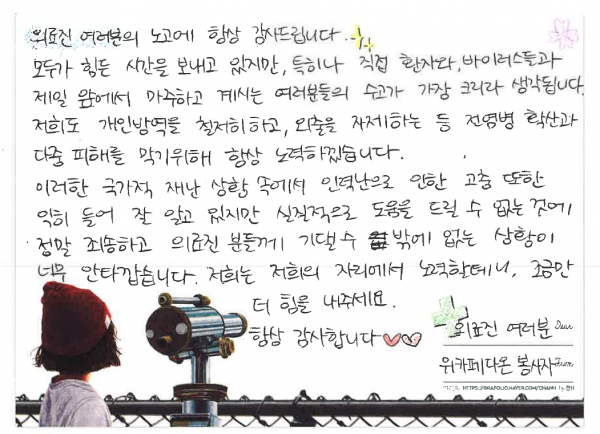 의료진 여러분의 노고에 항상 감사드립니다.
모두가 힘든 시간을 보내고 있지만, 특히나 직접 환자와, 바이러스들과
제일 앞에서 마주하고 계시는 여러분들의 수고가 가장 크리라 생각됩니다.
저희도 개인방역을 철저히하고, 외출을 자제하는 등 전염병 확산과
다중 피해를 막기위해 항상 노력하겠습니다.
이러한 국가적 재난 상황 속에서 인력난으로 인한 고충 또한
익히 들어 잘 알고 있지만 실질적으로 도움을 드릴 수 없는 것에
정말 죄송하고 의료진 분들께 기댈 수 밖에 없는 상황이
너무 안타깝습니다. 저희는 저희의 자리에서 노력할테니, 조금만
더 힘을 내주세요.
항상 감사합니다♡♡
의료진 여러분 Dear
위카페다온 봉사자 From